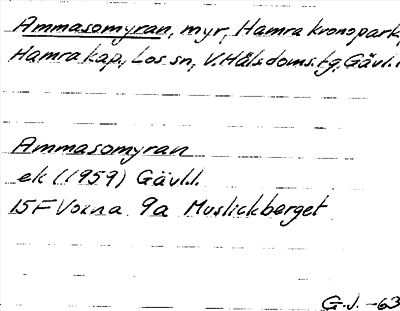 Ammasomyran, myr, Hamra kronopark,
Hamra kap., Los sn, V. Häls. doms. tg. Gävl. l.
Ammasomyran
ek (1959) Gävl. l.
15F Voxna 9a Muslickberget
G.J. -63